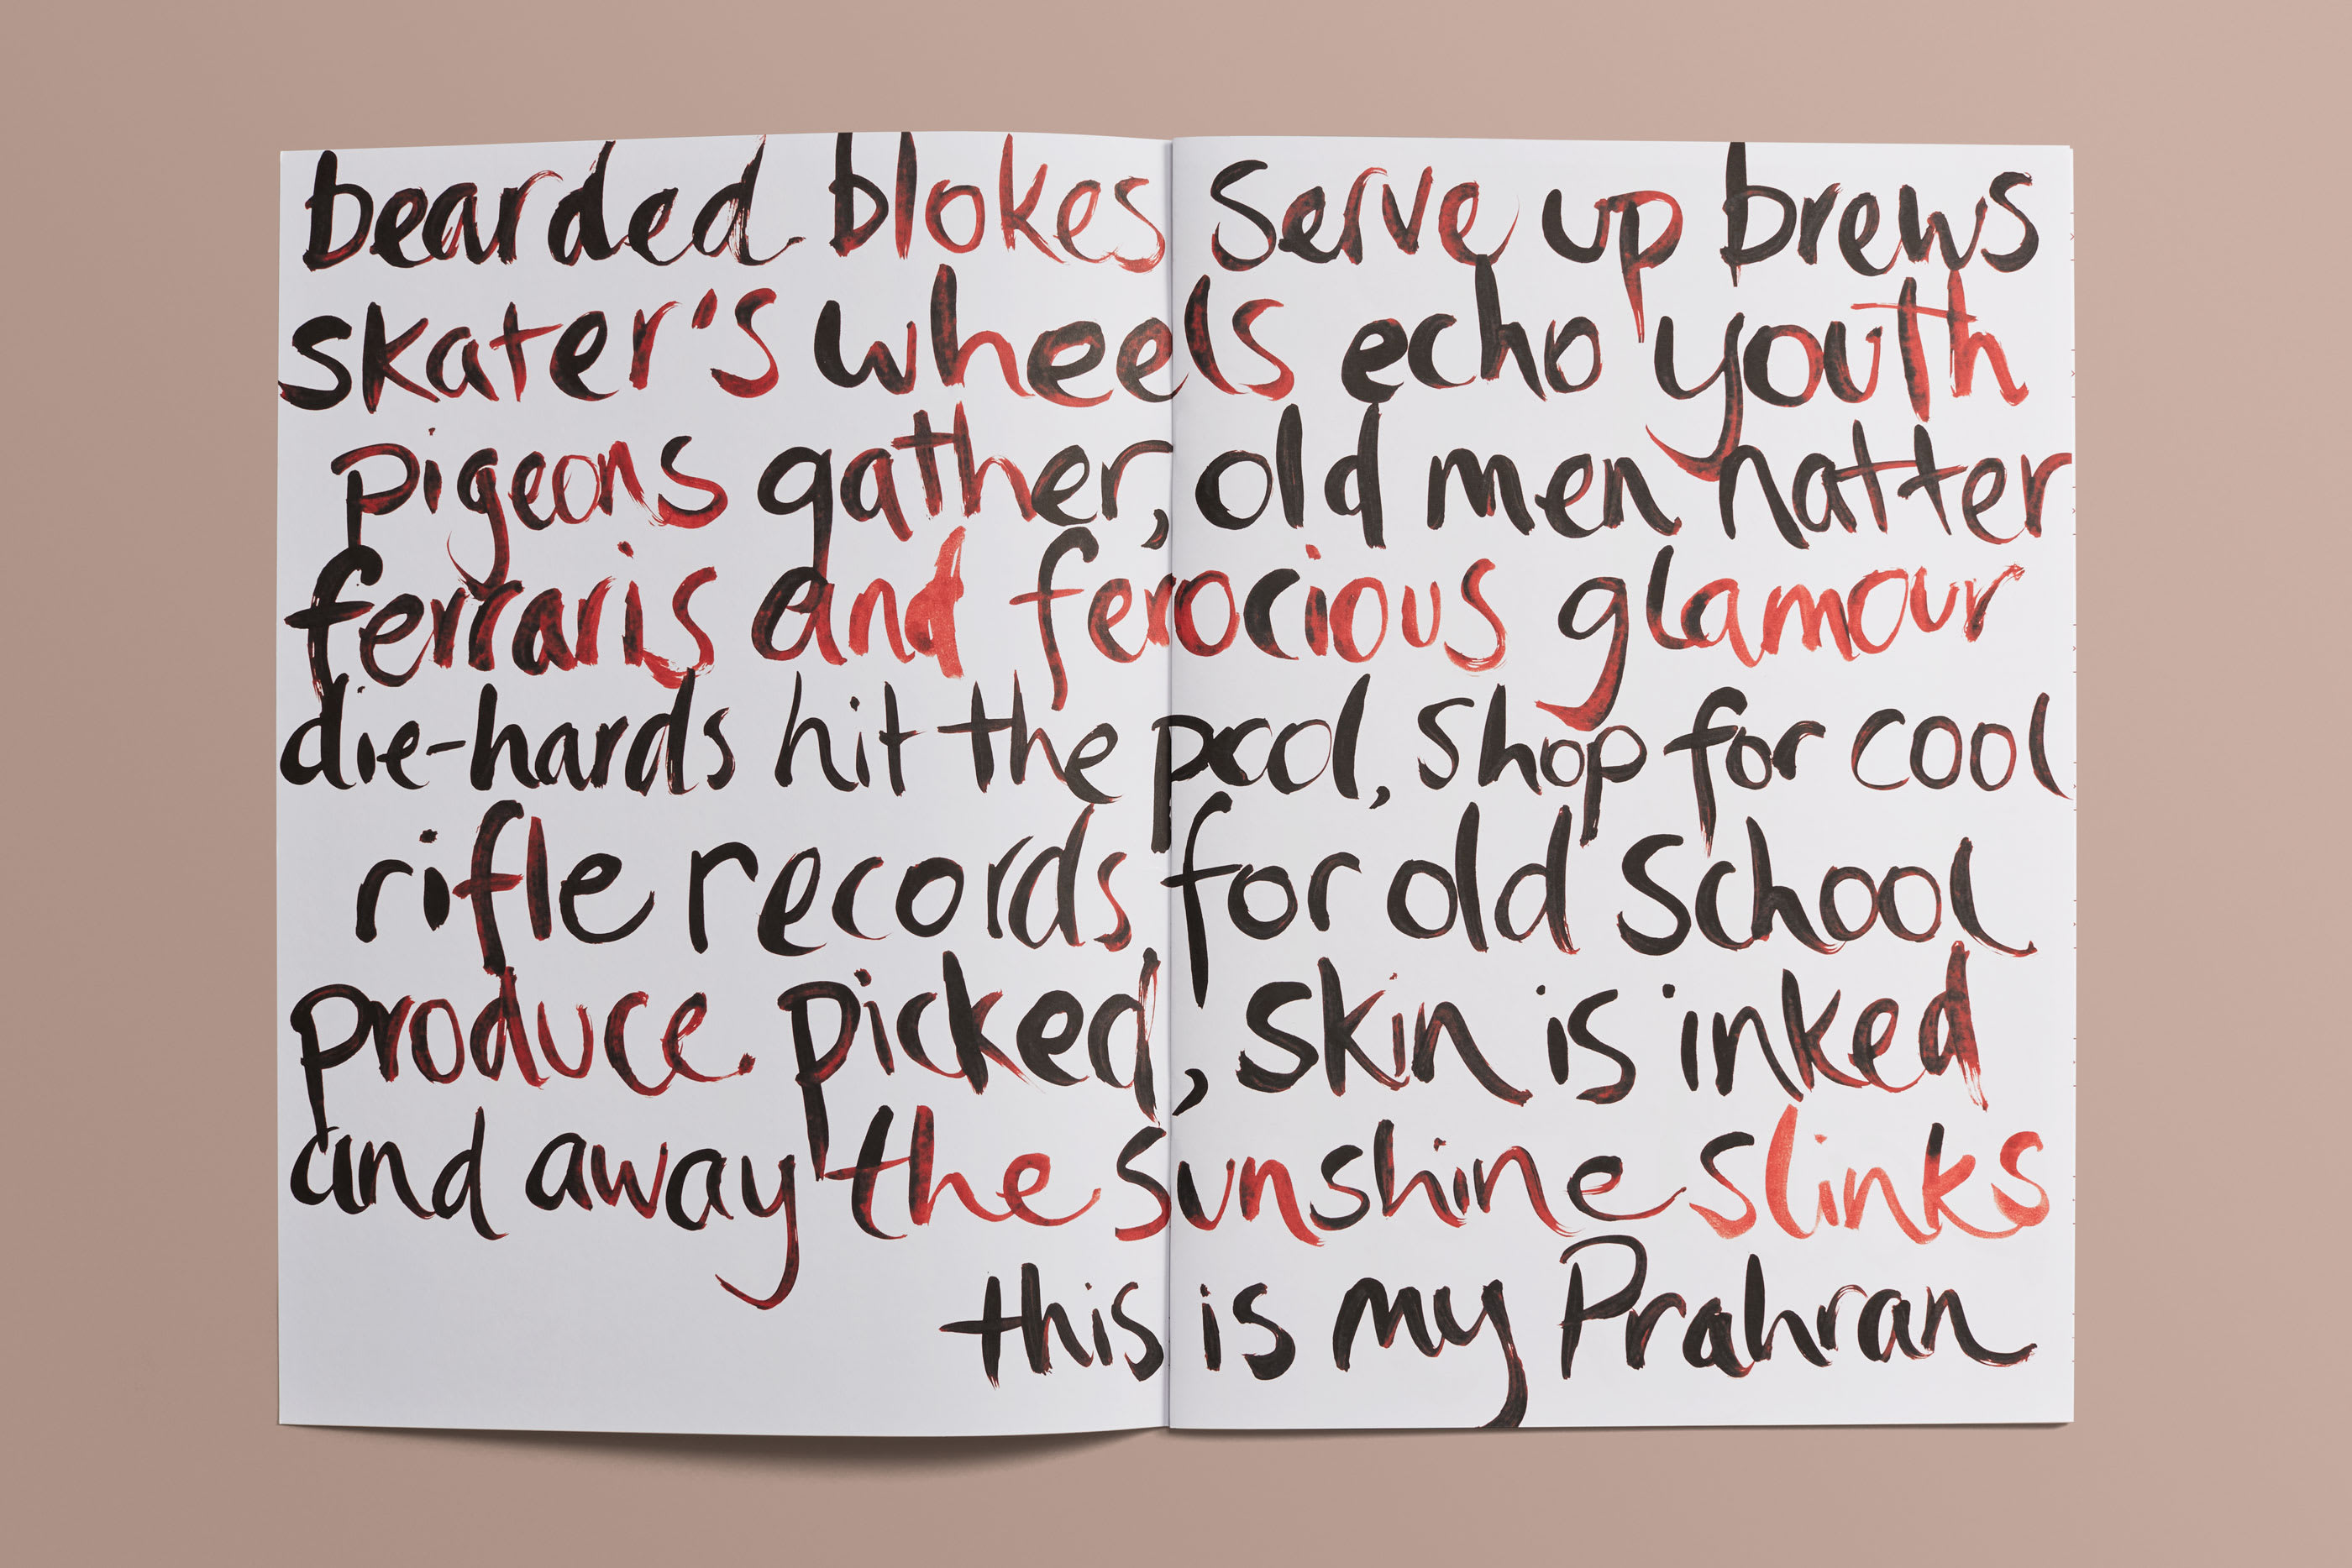 bearded blokes serve up brews
skater's wheels echo youth
pigeons gather, old men natter
ferraris and ferocious glamour
die-hards hit the pool, shop for cool
rifle records for old school
produce picked, skin is inked
and away the sunshine slinks
this is my Prahran